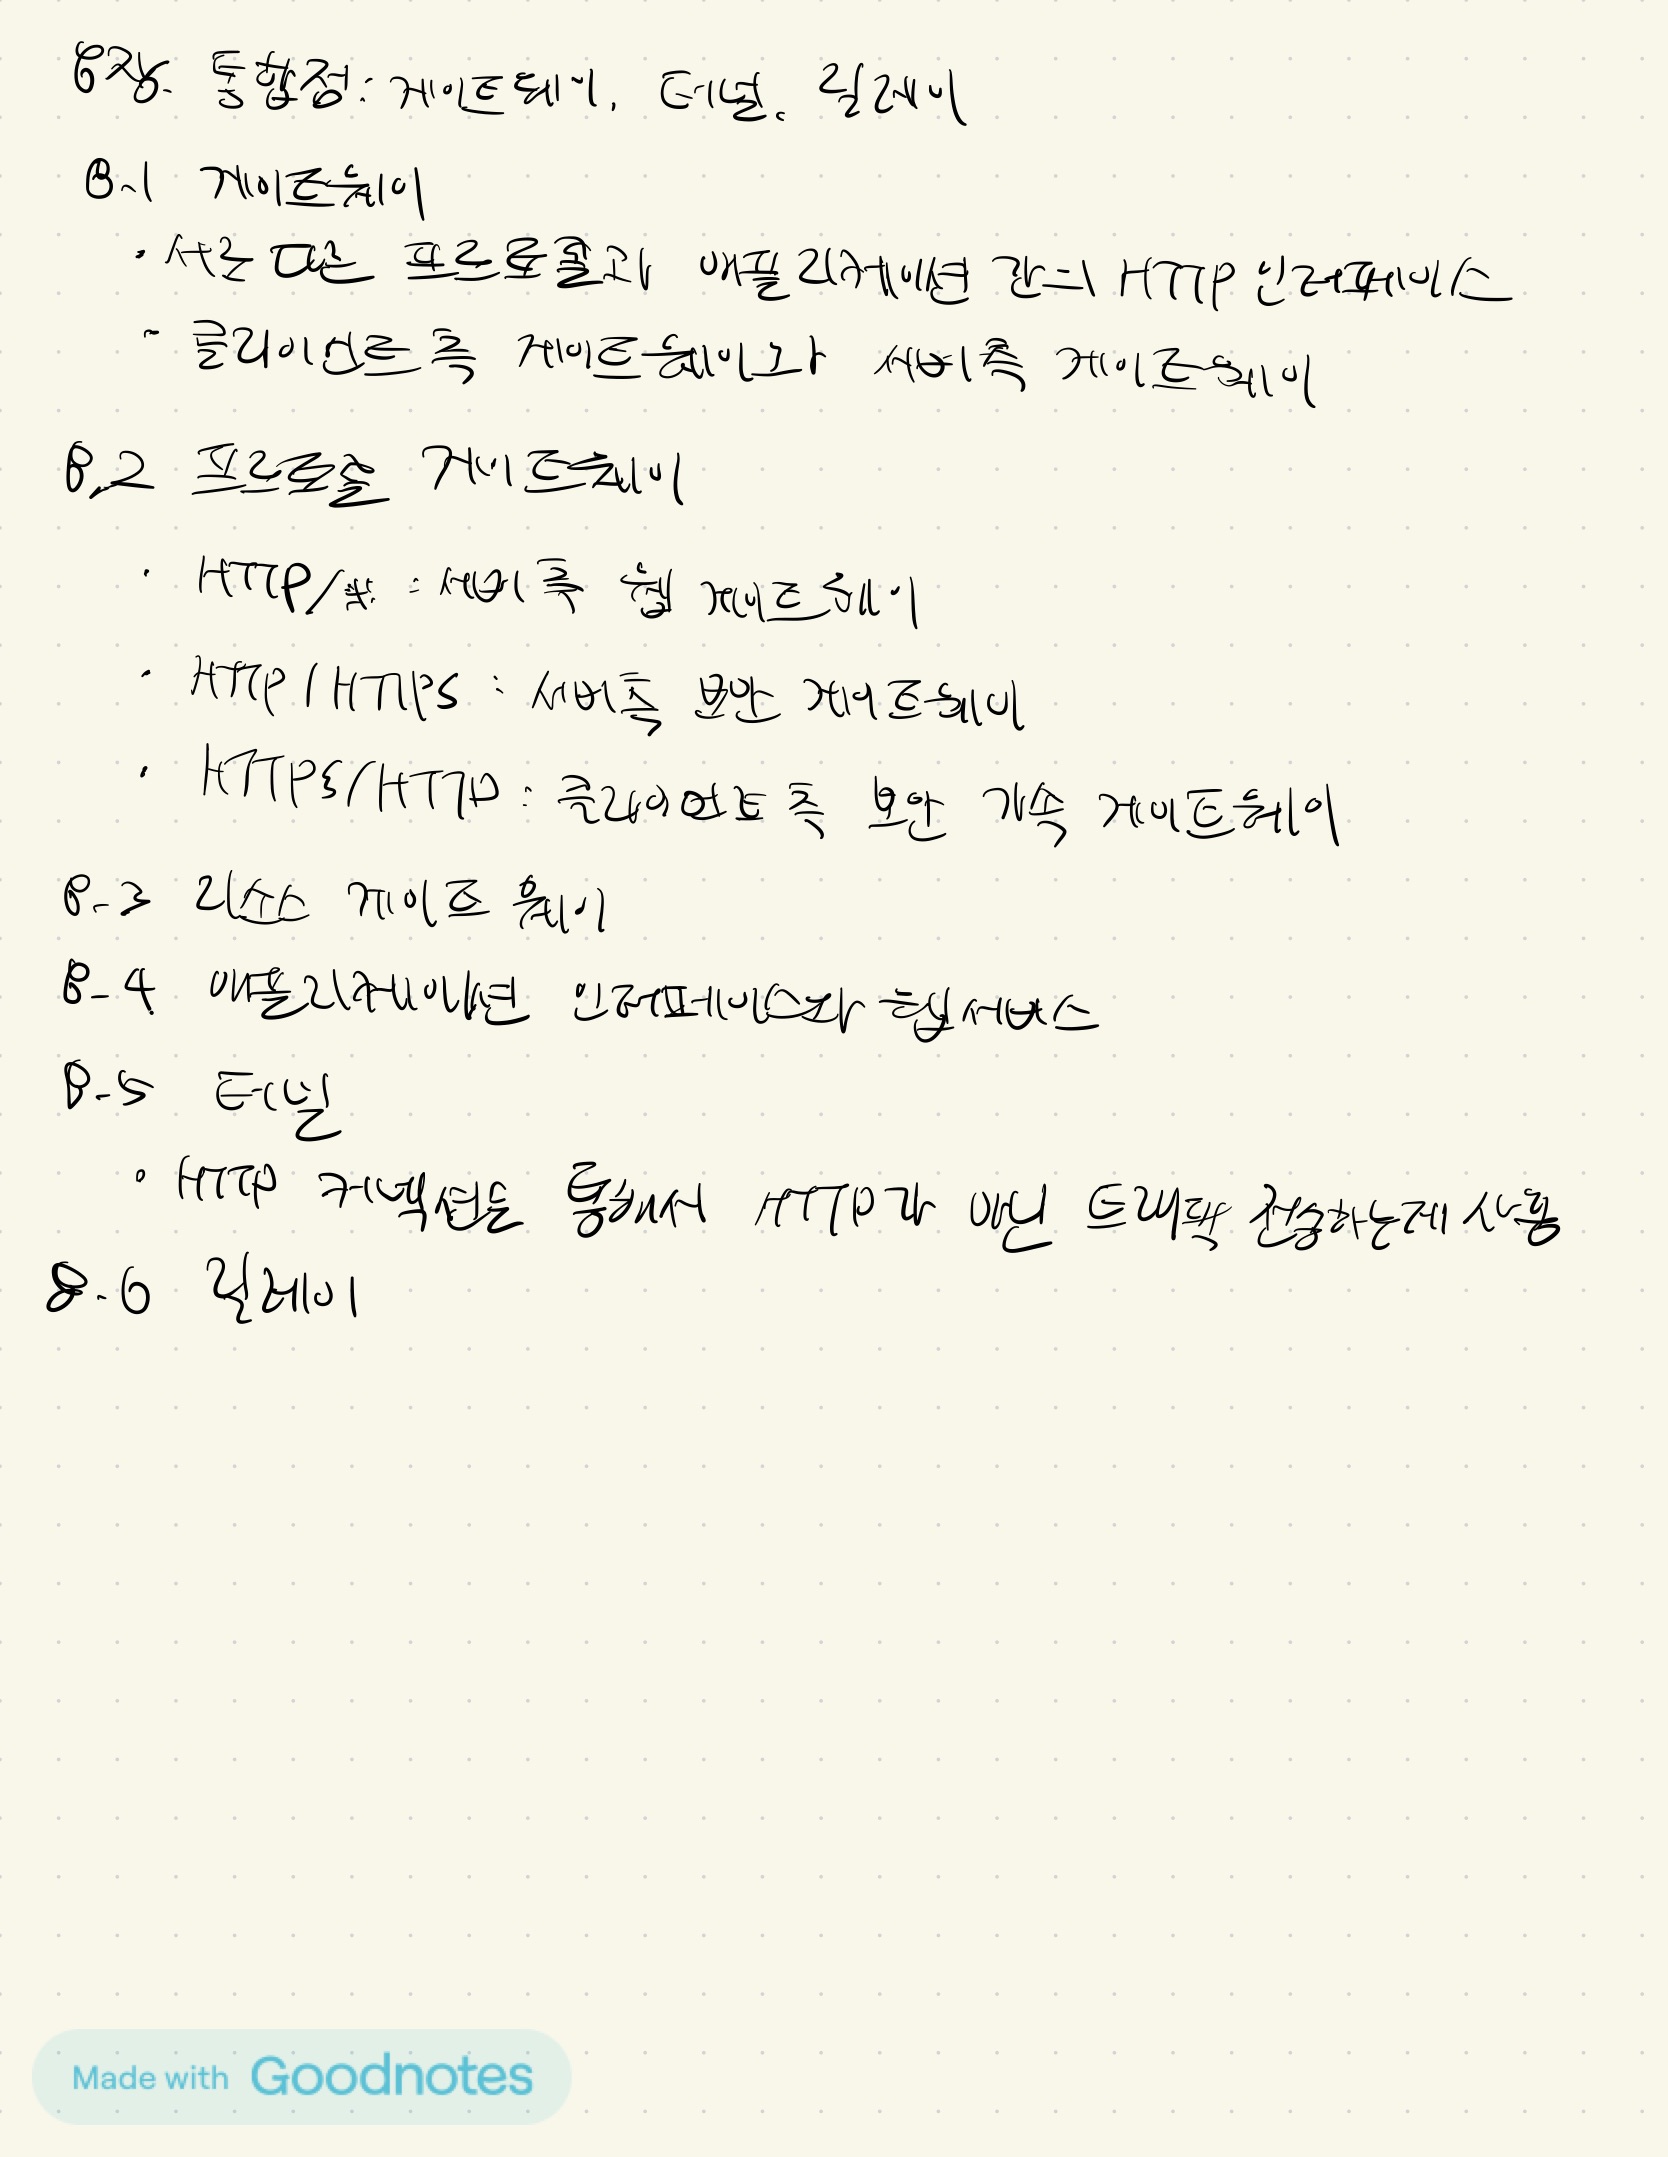 8장. 통합점: 게이트웨이, 터널, 릴레이
8.1 게이트웨이
· 서로 다른 프로토콜과 애플리케이션 간의 HTTP 인터페이스
- 클라이언트 측 게이트웨이와 서버측 게이트웨이
8.2 프로토콜 게이트웨이
· HTTP/*: 서버 측 웹 게이트웨이
· HTTP/HTTPS : 서버측 보안 게이트웨이
· HTTPS/HTTP : 클라이언트 측 보안 가속 게이트웨이
8.3 리소스 게이트웨이
8.4 애플리케이션 인터페이스와 웹 서비스
8.5 터널
· HTTP 커넥션을 통해서 HTTP가 아닌 트래픽 전송하는데 사용
8.6 릴레이
Made with Goodnotes